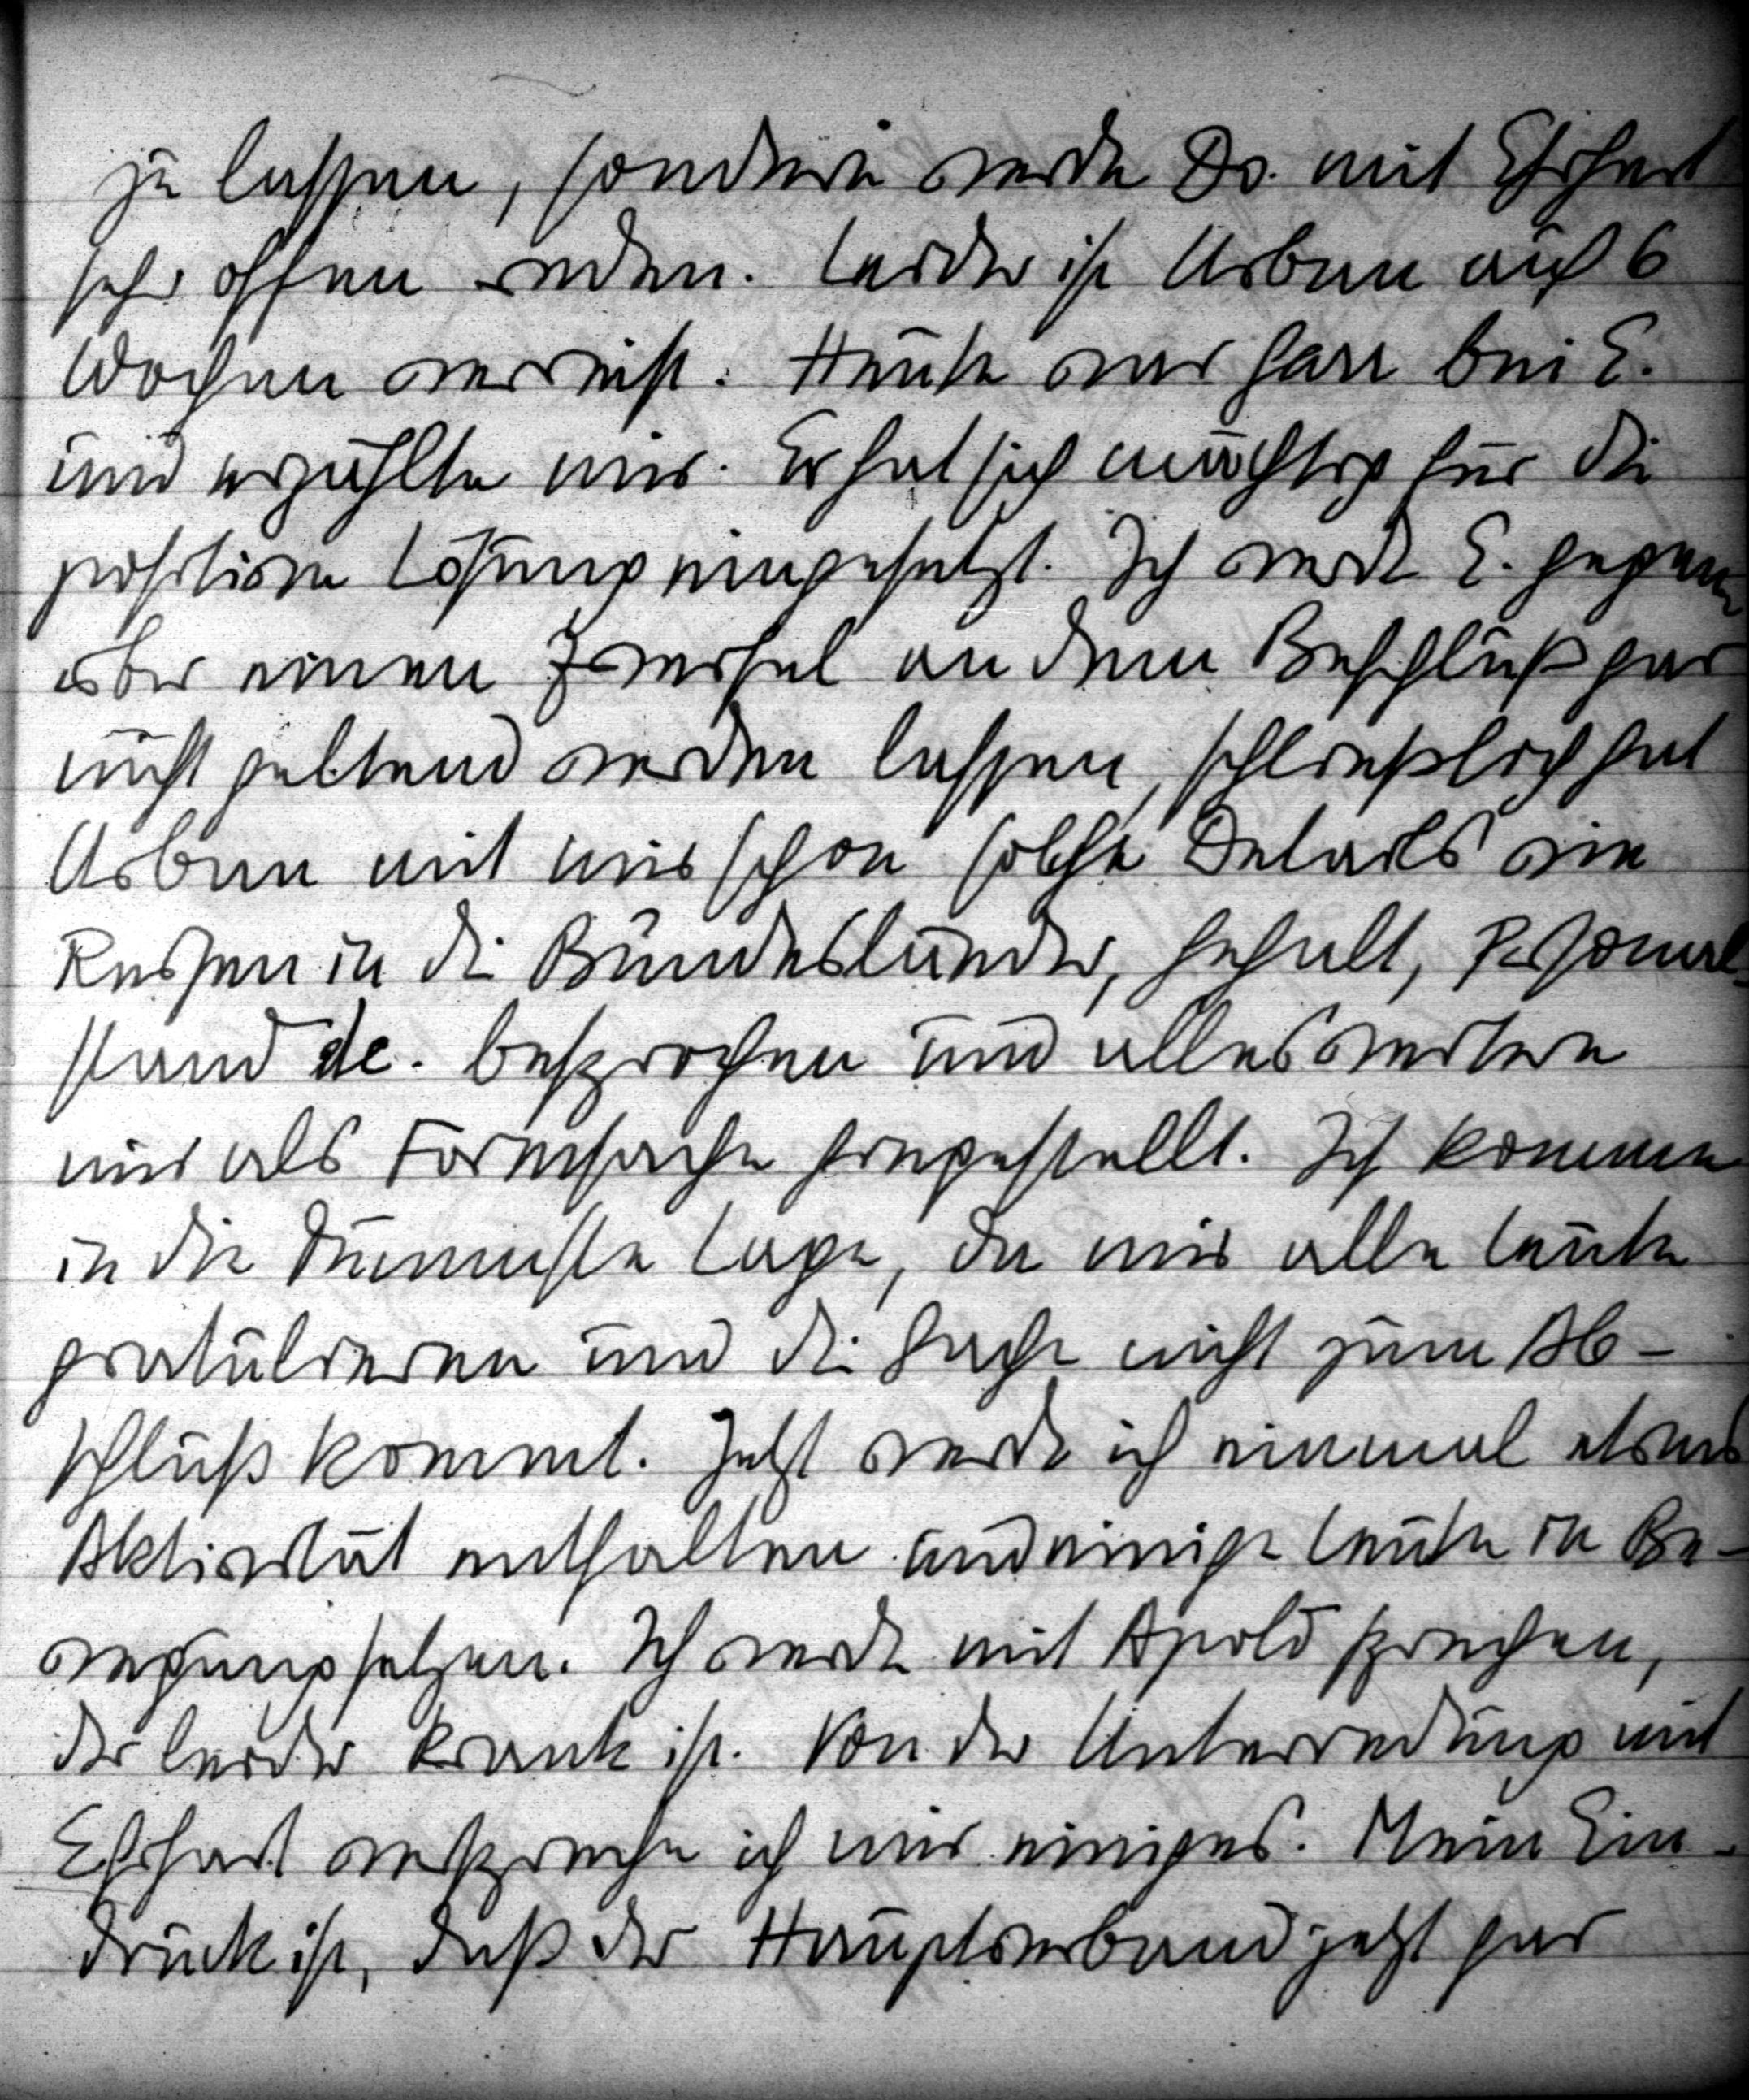 zu lassen, sondern werde Do. mit Ehrhart
sehr offen reden. Leider ist Urban auf 6
Wochen verreist. Heute war Harr bei E.
und erzählte mir. Er hat sich mächtig für die
positive Lösung eingesetzt. Ich werde E. gegen
über einen Zweifel an dem Beschluß gar
nicht geltend werden lassen, schließlich hat
Urban mit mir schon solche Details wie
Reisen in die Bundesländer, Gehalt, Personal-
stand etc. besprochen und alles weitere
mir als Formsache hingestellt. Ich komme
in die dümmste Lage, da mir alle Leute
gratulieren und die Sache nicht zum Ab-
schluß kommt. Jetzt werde ich einmal etwas
Aktivität entfalten und einige Leute in Be-
wegung setzen. Ich werde mit Apold sprechen,
der leider krank ist. Von der Unterredung mit
Ehrhart verspreche ich mir einiges. Mein Ein-
druck ist, daß der Hauptverband jetzt gar